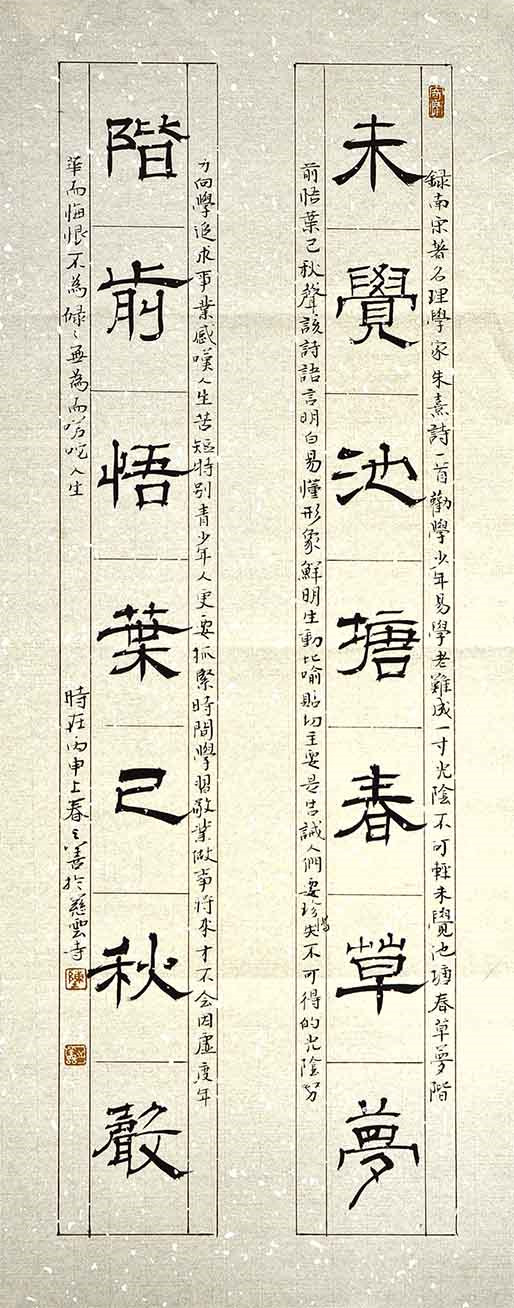 錄南宋著名理學家朱熹詩一首勸學少年易學老難成一寸光陰不可輕未覺池塘春草夢階
未覺池塘春草夢
前悟葉已秋聲該詩語言明白易懂形象鮮明生動比喻貼切主要是告誡人們要珍惜失不可得的光陰努
力向學追求事業感嘆人生苦短特別青少年人更要抓緊時間學習敬業做事将來才不会因虛度年
階前悟葉已秋聲
華而悔恨不為碌〻無為而人生
時在丙申上春之善於慈雲寺